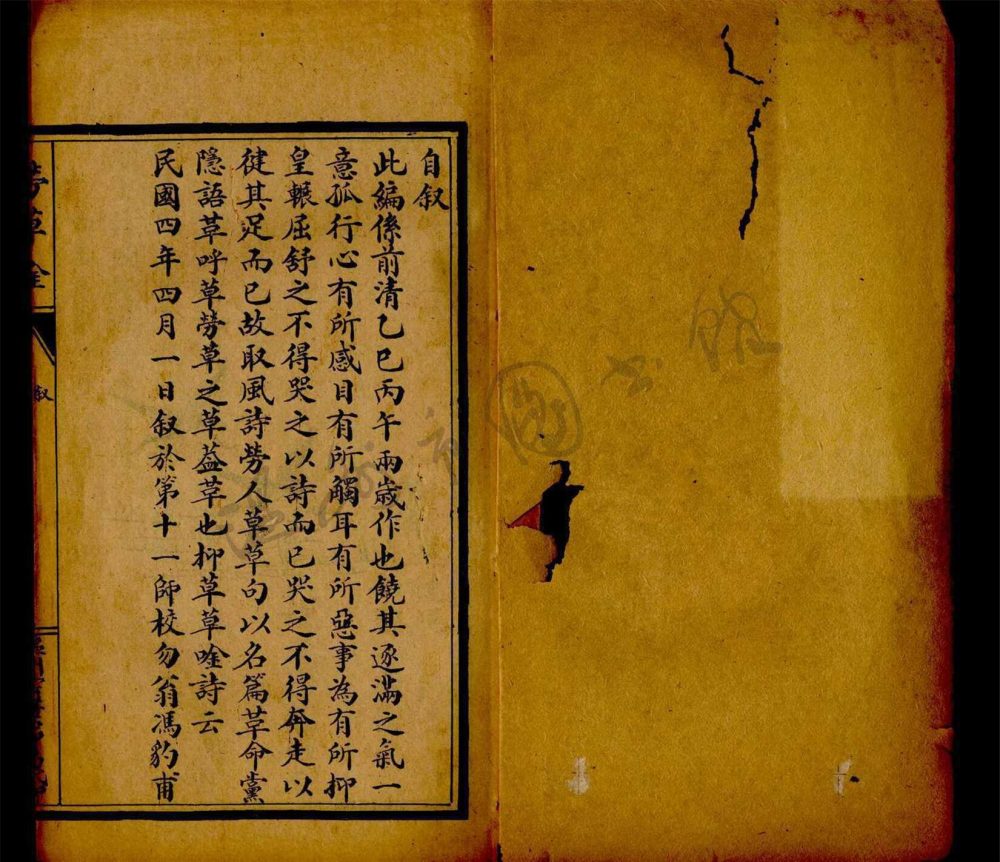 自叙
此編係前清乙巳丙午兩歲作也饒其逐滿之氣一
意孤行心有所感目有所觸耳有所惡事為有所抑
皇輾屈舒之不得哭之以詩而已哭之不得奔走以
徤其足而已故取風詩勞人草草句以名篇草命黨
隱語草呼草勞草之草葢草也抑草草唫詩云
民國四年四月一日叙於第十一師校勿翁馮豹甫
勞草唫
叙
圕